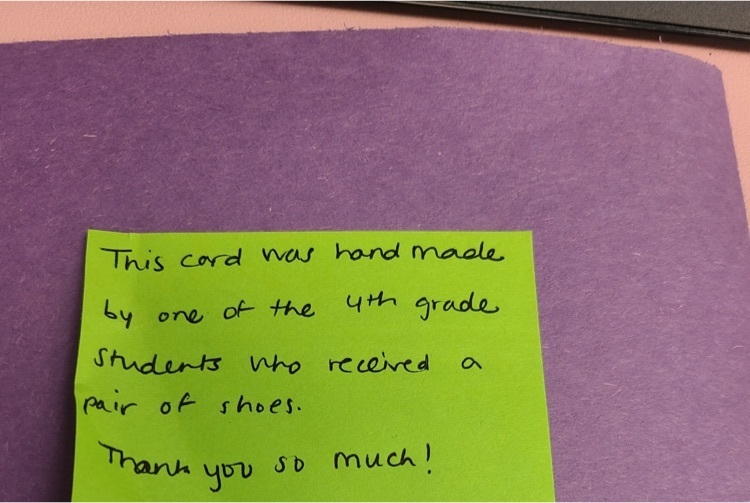 This card was hand made
by one of the 4th grade
students who received a
pair of shoes.
Thank you so much!